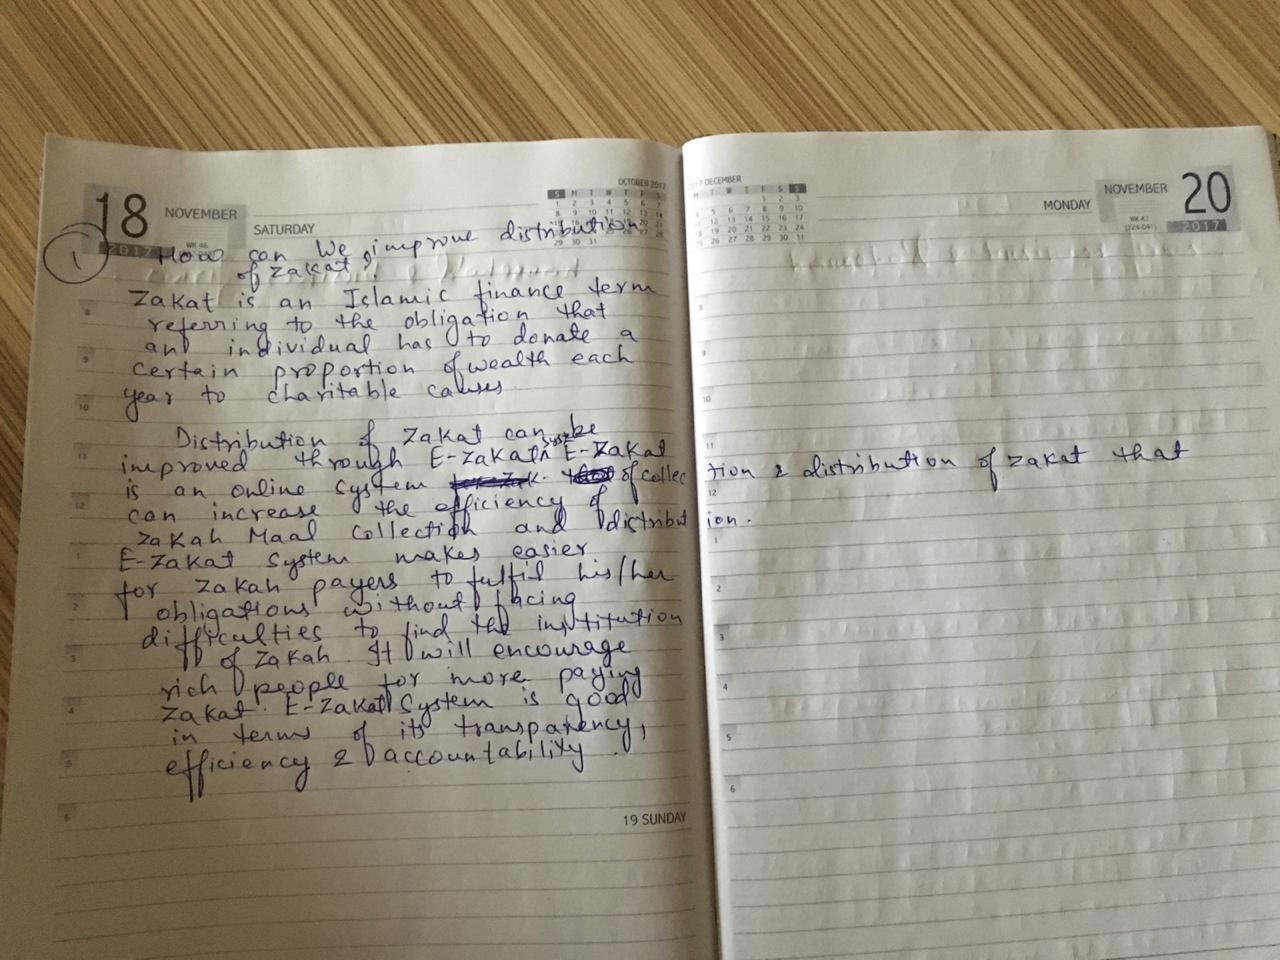 18 NOVEMBER
2017 WK 46
SATURDAY
OCTOBER 2017
S M T W T F S
1 2 3 4 5 6 7
29 30 31
1 How can We improve distribution
of Zakat?
Zakat is an Islamic finance term
referring to the obligation that
an individual has to donate a
certain proportion of wealth each
year to charitable causes
Distribution of Zakat can be
improved through E-Zakat system E-Zakat
is an online system of collection & distribution of Zakat that
can increase the efficiency of
Zakah Maal Collection and distribution.
E-Zakat System makes easier
for Zakah payers to fulfil his/her
obligations without facing
difficulties to find the institution
of Zakah. It will encourage
rich people for more paying
Zakat. E-Zakat System is good
in terms of its transparency,
efficiency & accountability.
8
9
10
11
12
1
2
3
4
5
6
19 SUNDAY
2017 DECEMBER
M T W T F S S
1 2 3
4 5 6 7 8 9 10
11 12 13 14 15 16 17
18 19 20 21 22 23 24
25 26 27 28 29 30 31
MONDAY
NOVEMBER 20
WK 47
2017
8
9
10
11
12
1
2
3
4
5
6